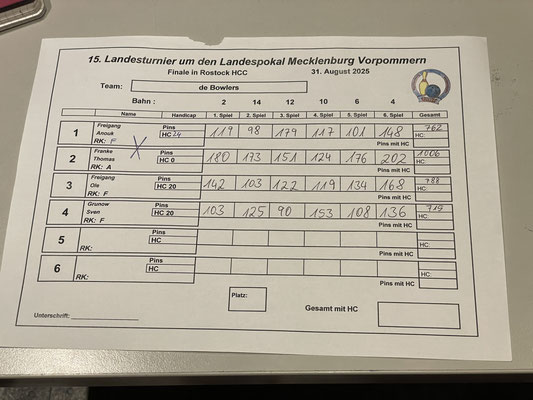 15. Landesturnier um den Landespokal Mecklenburg Vorpommern
Finale in Rostock HCC 31. August 2025
Team: de Bowlers
Bahn : 2 14 12 10 6 4
Name Handicap 1. Spiel 2. Spiel 3. Spiel 4. Spiel 5. Spiel 6. Spiel Gesamt
1 Freigang Anouk RK: F Pins HC 24 119 98 179 117 101 148 762 HC:
Pins mit HC
2 Franke Thomas RK: A X Pins HC 0 180 173 151 124 176 202 1006 HC:
Pins mit HC
3 Freigang Ole RK: F Pins HC 20 142 103 122 119 134 168 788 HC:
Pins mit HC
4 Grunow Sven RK: F Pins HC 20 103 125 90 153 108 136 715 HC:
Pins mit HC
5 RK: Pins HC HC:
Pins mit HC
6 RK: Pins HC HC:
Pins mit HC
Platz:
Gesamt mit HC
Unterschrift: